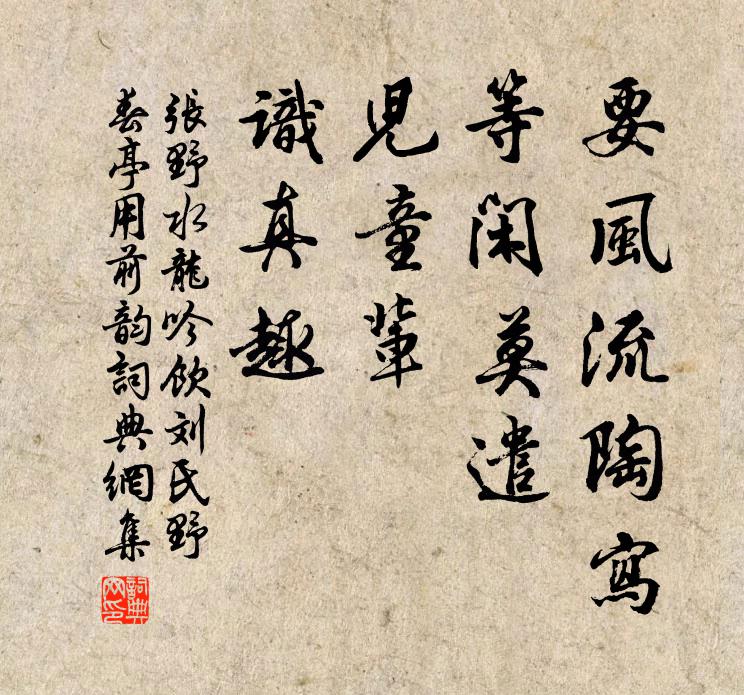 要風流陶寫
等閑莫遣
児童輩
識真趣
張野水龍吟飲刘氏野
春亭用前韵詞典網集
詞典网印